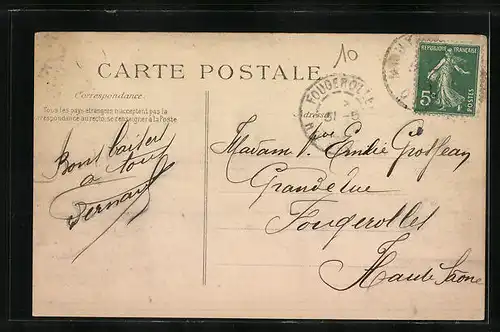 10
CARTE POSTALE
RÉPUBLIQUE FRANÇAISE
5c
POSTES
FOUGEROLLES
Correspondance
Tous les pays étrangers n'acceptant pas la
correspondance au recto, se renseigner à la Poste
Adresse
Bons baisers
a tous
Fernand
Madame Vve Emilie Grosjean
Grande rue
Fougerolles
Haute Saône